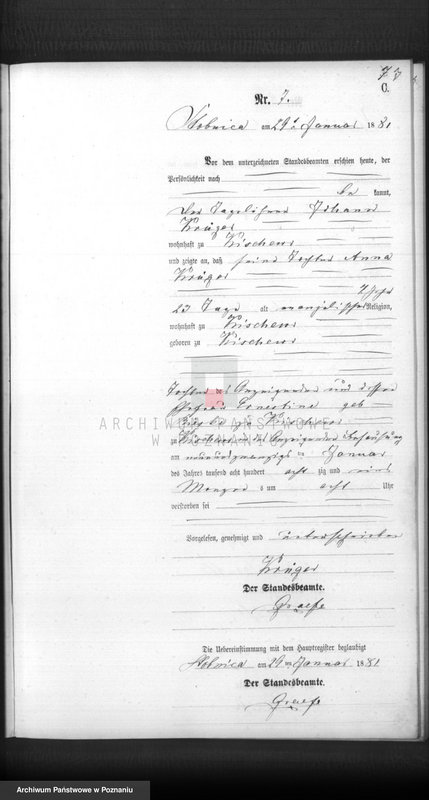 7
C.
Nr. 7.
Stobnica am 29ten Januar 1881
Vor dem unterzeichneten Standesbeamten erschien heute, der
Persönlichkeit nach
be kannt,
der Tagelöhner Johann
Krüger
wohnhaft zu Kischewo
und zeigte an, daß seine Tochter Anna
Krüger
23 Tage alt evangelischer Religion,
wohnhaft zu Kischewo
geboren zu Kischewo
Tochter des Anzeigenden und dessen
Ehefrau Ernestine geb
ARCHIWUM PAŃSTWOWE
W POZNANIU
zu Kischewo in des Anzeigenden Behausung
am neunundzwanzigsten Januar
des Jahres tausend acht hundert acht zig und eins
Morgens um acht Uhr
verstorben sei
Vorgelesen, genehmigt und unterschrieben
Krüger
Der Standesbeamte.
Graefe
Die Uebereinstimmung mit dem Hauptregister beglaubigt
Stobnica am 29ten Januar 1881
Der Standesbeamte.
Graefe
Archiwum Państwowe w Poznaniu